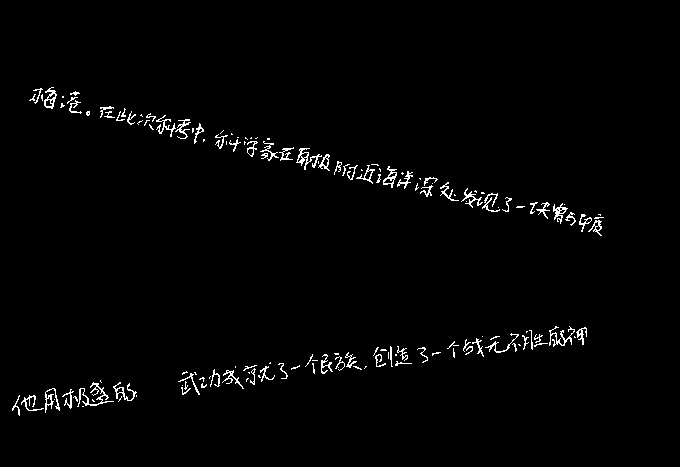 梅港。在此次科考中，科学家在南极附近海洋深处发现了一块曾与印度
他用极盛的 武功成就了一个民族，创造了一个战无不胜的神